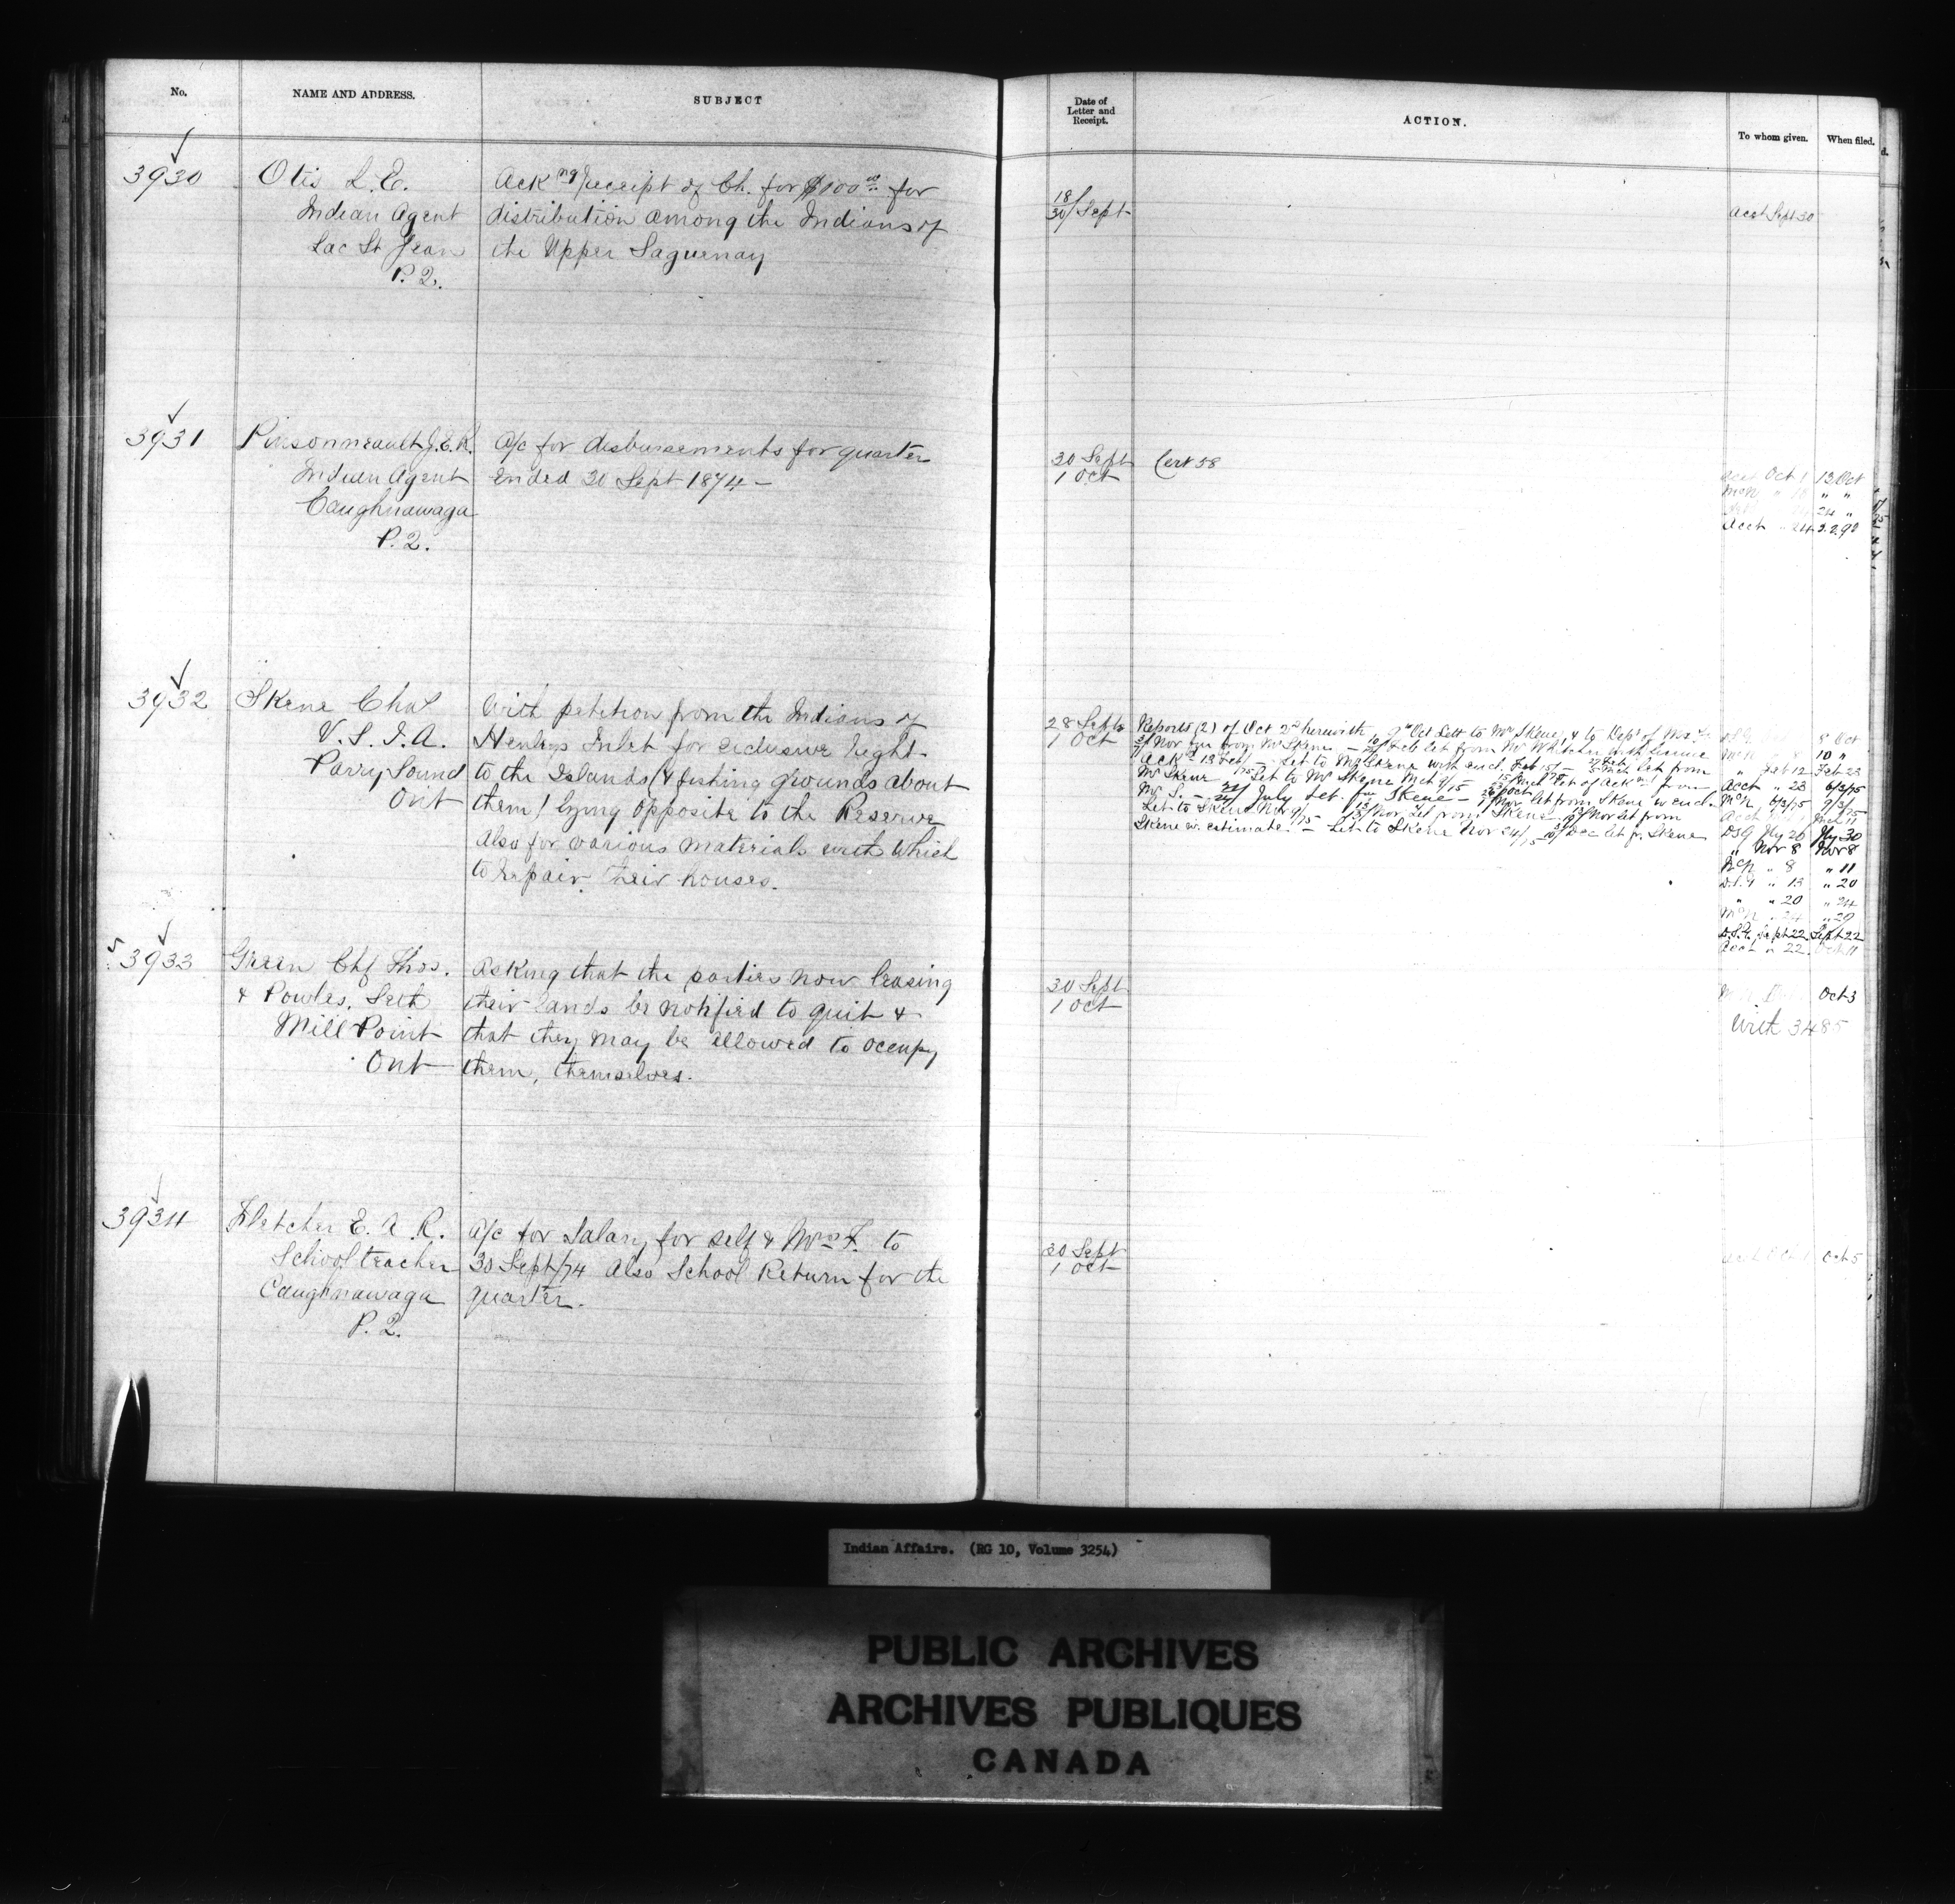 No.
NAME AND ADDRESS.
SUBJECT
Date of
Letter and
Receipt.
ACTION.
To whom given.
When filed.
3930
Otis L. E.
Indian Agent
Lac St Jean
P. Q.
Ack ng receipt of Ch. for $100 for
distribution among the Indians of
the Upper Saguenay
18/30 Sept
Acct Sept 30
3931
Pinsonneault J. E. R.
Indian Agent
Caughnawaga
P. Q.
A/c for disbursements for quarter
ended 30 Sept 1874 -
30 Sept
1 Oct
Cert 58
Oct 1 13 Oct
McN " " "
24 "
Acct " 24
3932
Skene Chas
V. S. I. A.
Parry Sound
Ont
With petition from the Indians of
Henleys Inlet for exclusive right
to the Islands (& fishing grounds about
them) lying opposite to the Reserve
Also for various materials with which
to repair their houses.
28 Sept
1 Oct
Reports (2) of Oct 2nd herewith 9th Oct Lett to Mr Skene, & to Dep of
Nov from Mr Skene - Feb let from Mr Whitcher with
Ack 13 Feb - Let to Mr Skene with encl. Feb - let from
Mr Skene Let to Mr Skene Mch 9/75 let of Ack from
Mr S. - July Let. fm Skene - Nov let from Skene w encl.
Let to Skene Nov 9/75 Nov Let from Skene Nov let from
Skene w. estimate - Let to Skene Nov 24/75 Dec let fr. Skene
8 Oct
10 "
" Feb 12 Feb 23
Acct " 23 6/3/75
McN 6/3/75 9/3/75
DSG Jly 26 Jly 30
" Nov 8 Nov 8
McN " 8 " 11
" 13 " 20
" " 20 " 24
McN " 24 " 29
Sept 22 Sept 22
Acct " 22
3933
Green Chf Thos.
& Powles, Seth
Mill Point
Ont
Asking that the parties now leasing
their lands be notified to quit &
that they may be allowed to occupy
them, themselves.
30 Sept
1 Oct
Oct 3
With 3485
3934
Fletcher E. A. R.
School teacher
Caughnawaga
P. Q.
A/c for Salary for self & Mrs F. to
30 Sept/74 Also School Return for the
quarter.
30 Sept
1 Oct
Oct 5
Indian Affairs. (RG 10, Volume 3254)
PUBLIC ARCHIVES
ARCHIVES PUBLIQUES
CANADA